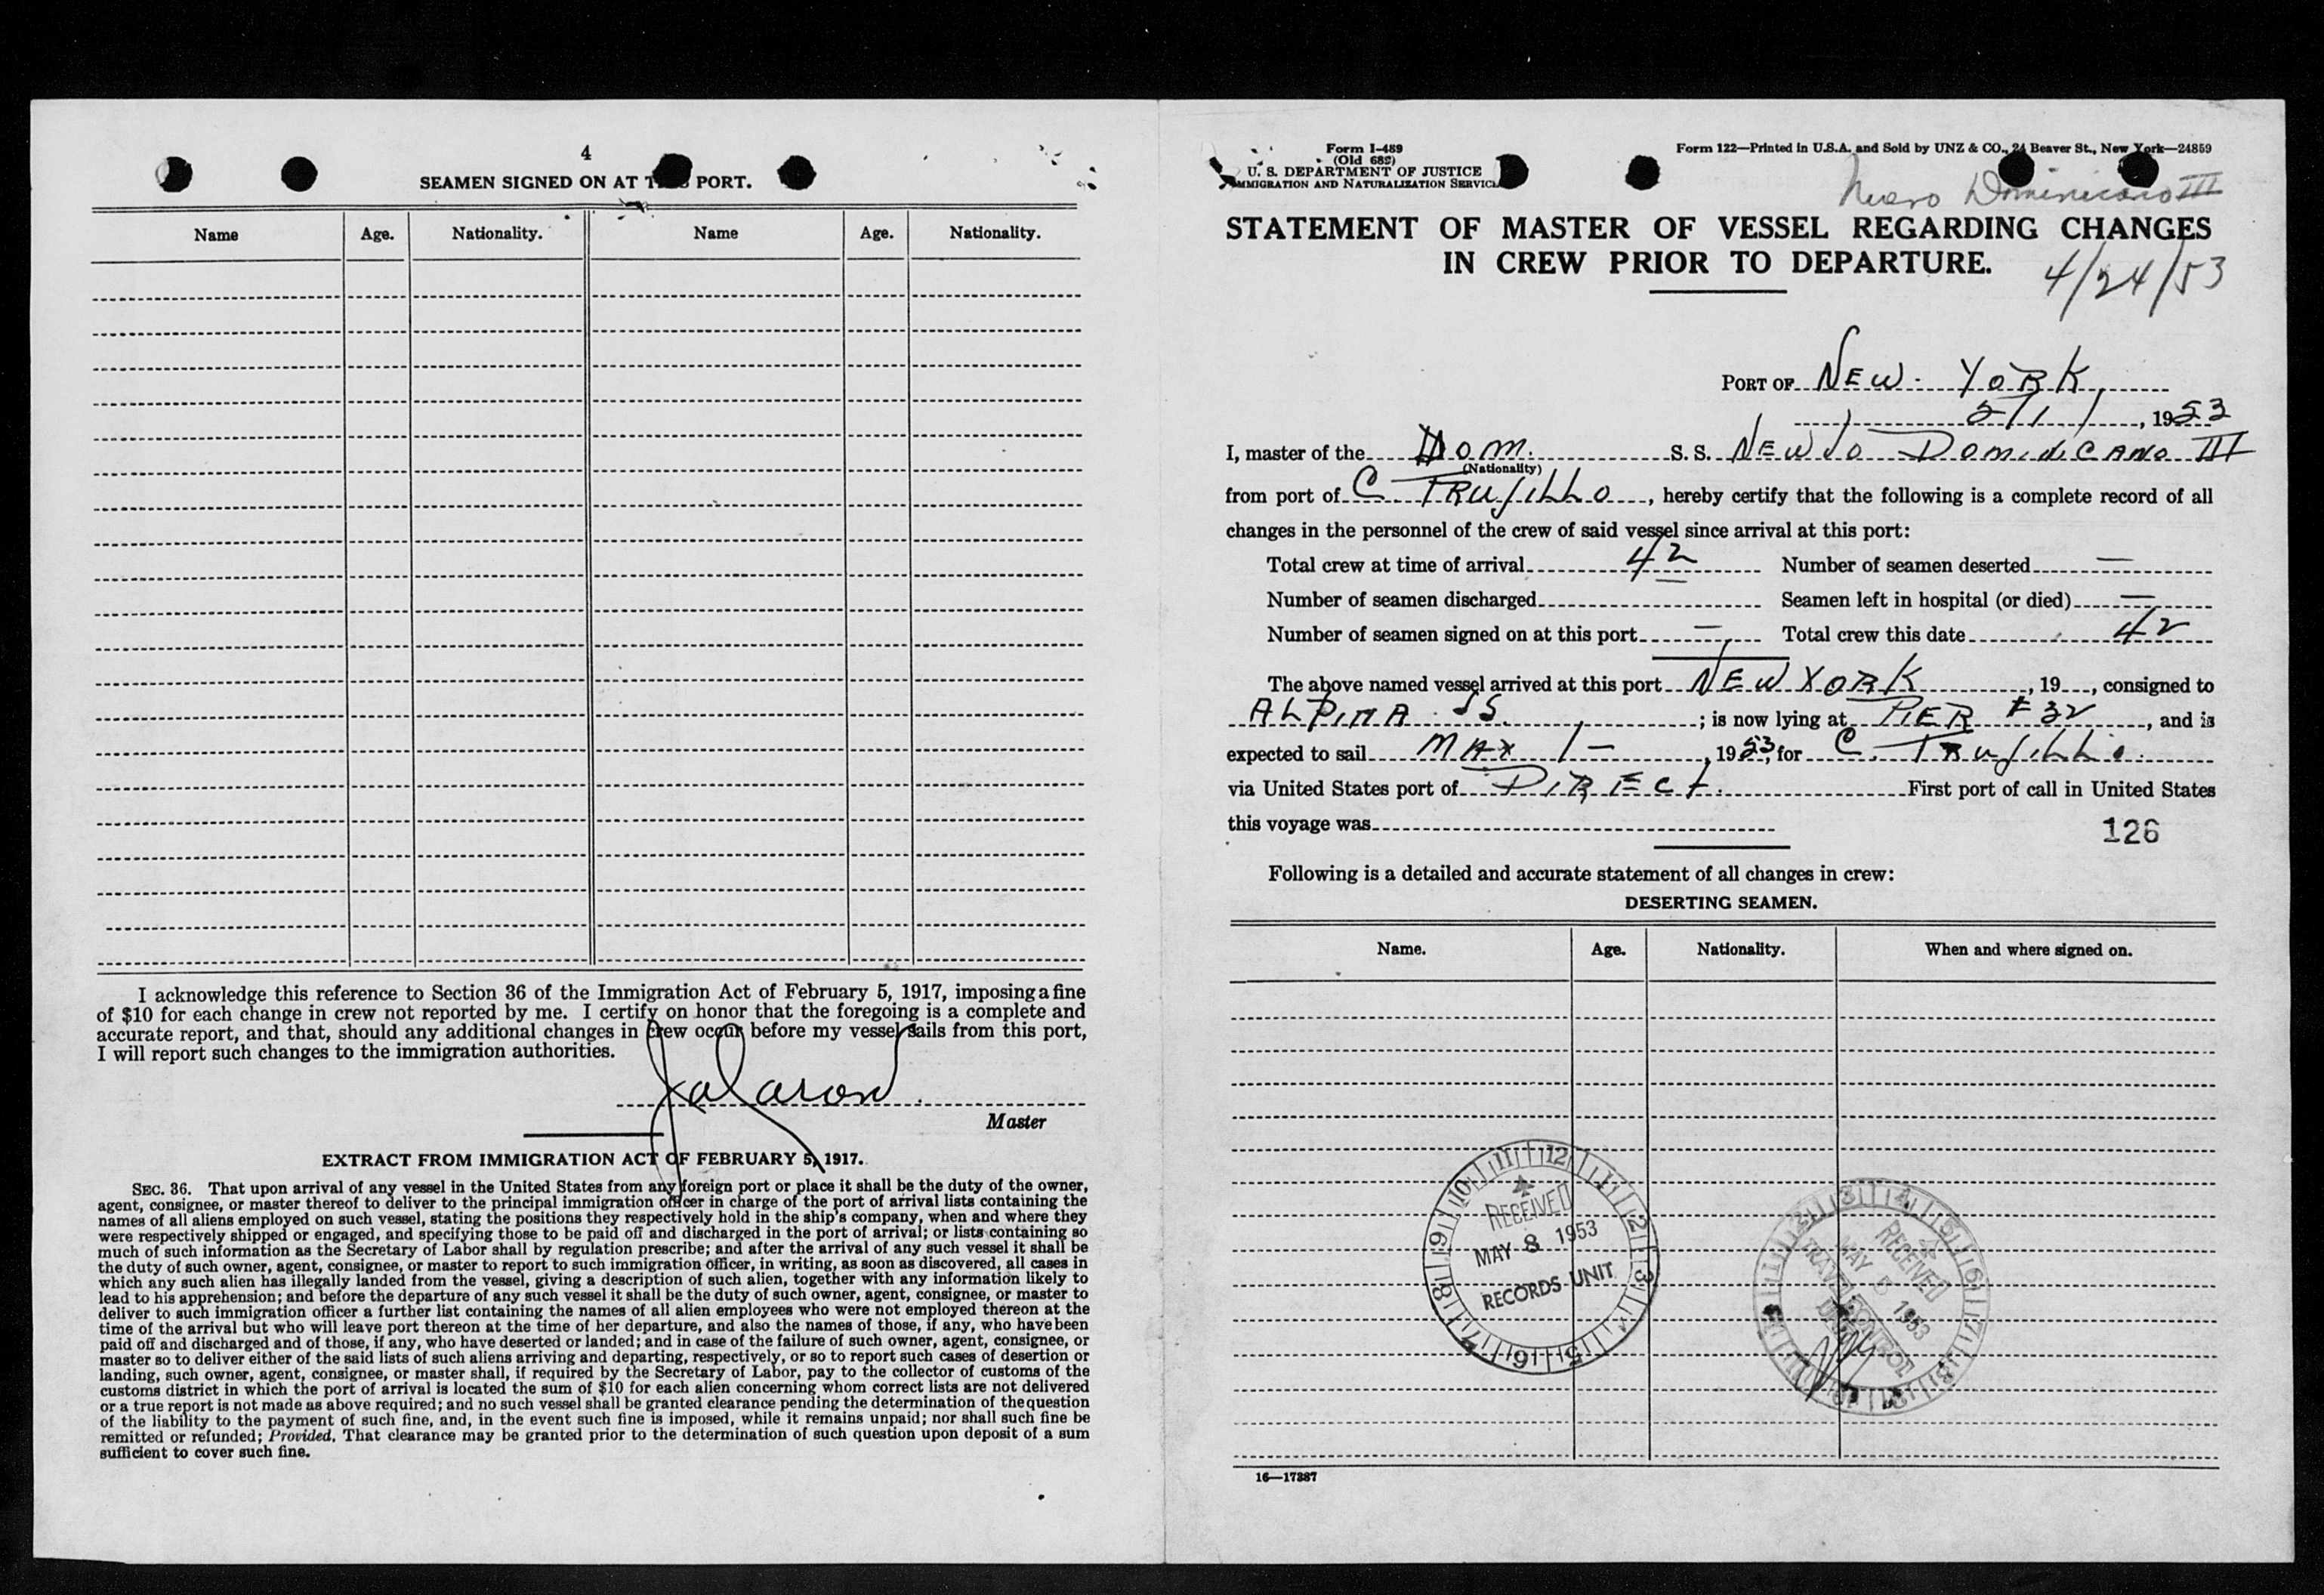 4
SEAMEN SIGNED ON AT PORT.
Name Age. Nationality. Name Age. Nationality.
I acknowledge this reference to Section 36 of the Immigration Act of February 5, 1917, imposing a fine
of $10 for each change in crew not reported by me. I certify on honor that the foregoing is a complete and
accurate report, and that, should any additional changes in crew occur before my vessel sails from this port,
I will report such changes to the immigration authorities.
Master
EXTRACT FROM IMMIGRATION ACT OF FEBRUARY 5, 1917.
SEC. 36. That upon arrival of any vessel in the United States from any foreign port or place it shall be the duty of the owner,
agent, consignee, or master thereof to deliver to the principal immigration officer in charge of the port of arrival lists containing the
names of all aliens employed on such vessel, stating the positions they respectively hold in the ship's company, when and where they
were respectively shipped or engaged, and specifying those to be paid off and discharged in the port of arrival; or lists containing so
much of such information as the Secretary of Labor shall by regulation prescribe; and after the arrival of any such vessel it shall be
the duty of such owner, agent, consignee, or master to report to such immigration officer, in writing, as soon as discovered, all cases in
which any such alien has illegally landed from the vessel, giving a description of such alien, together with any information likely to
lead to his apprehension; and before the departure of any such vessel it shall be the duty of such owner, agent, consignee, or master to
deliver to such immigration officer a further list containing the names of all alien employees who were not employed thereon at the
time of the arrival but who will leave port thereon at the time of her departure, and also the names of those, if any, who have been
paid off and discharged and of those, if any, who have deserted or landed; and in case of the failure of such owner, agent, consignee, or
master so to deliver either of the said lists of such aliens arriving and departing, respectively, or so to report such cases of desertion or
landing, such owner, agent, consignee, or master shall, if required by the Secretary of Labor, pay to the collector of customs of the
customs district in which the port of arrival is located the sum of $10 for each alien concerning whom correct lists are not delivered
or a true report is not made as above required; and no such vessel shall be granted clearance pending the determination of the question
of the liability to the payment of such fine, and, in the event such fine is imposed, while it remains unpaid; nor shall such fine be
remitted or refunded; Provided, That clearance may be granted prior to the determination of such question upon deposit of a sum
sufficient to cover such fine.
Form I-489
(Old 689)
U. S. DEPARTMENT OF JUSTICE
IMMIGRATION AND NATURALIZATION SERVICE
Form 122—Printed in U.S.A. and Sold by UNZ & CO., 24 Beaver St., New York—24859
Nuevo Dominicano III
STATEMENT OF MASTER OF VESSEL REGARDING CHANGES
IN CREW PRIOR TO DEPARTURE.
4/24/53
PORT OF NEW YORK
5/1/, 1953
I, master of the Dom. S. S. NEWVO DOMINICANO III
(Nationality)
from port of C TRUJILLO, hereby certify that the following is a complete record of all
changes in the personnel of the crew of said vessel since arrival at this port:
Total crew at time of arrival 42 Number of seamen deserted —
Number of seamen discharged Seamen left in hospital (or died) —
Number of seamen signed on at this port — Total crew this date 42
The above named vessel arrived at this port NEW YORK, 19, consigned to
ALPINA SS.; is now lying at PIER #32, and is
expected to sail MAY 1—, 1953, for C. TRUJILLO.
via United States port of DIRECT. First port of call in United States
this voyage was
126
Following is a detailed and accurate statement of all changes in crew:
DESERTING SEAMEN.
Name. Age. Nationality. When and where signed on.
RECEIVED
MAY 8 1953
RECORDS UNIT
RECEIVED
MAY 5 1953
TRAVEL CONTROL
16—17387